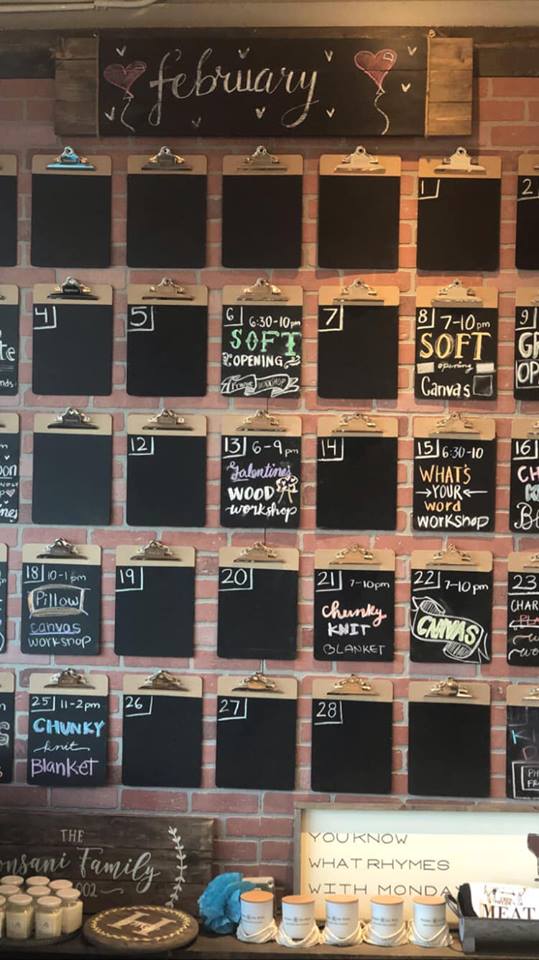 february
1
2
4
5
6 6:30-10pm
SOFT
OPENING
Frame WORKSHOP
7
8 7-10pm
SOFT
opening
Canvas
9
12
13 6-9pm
Galentine's
WOOD
workshop
14
15 6:30-10
WHAT'S
YOUR
word
WORKSHOP
16
18 10-1pm
Pillow
canvas
WORKSHOP
19
20
21 7-10pm
Chunky
KNIT
BLANKET
22 7-10pm
CANVAS
23
25 11-2pm
CHUNKY
knit
Blanket
26
27
28
THE
onsani Family
002
H
YOU KNOW
WHAT RHYMES
WITH MONDAY
MEAT